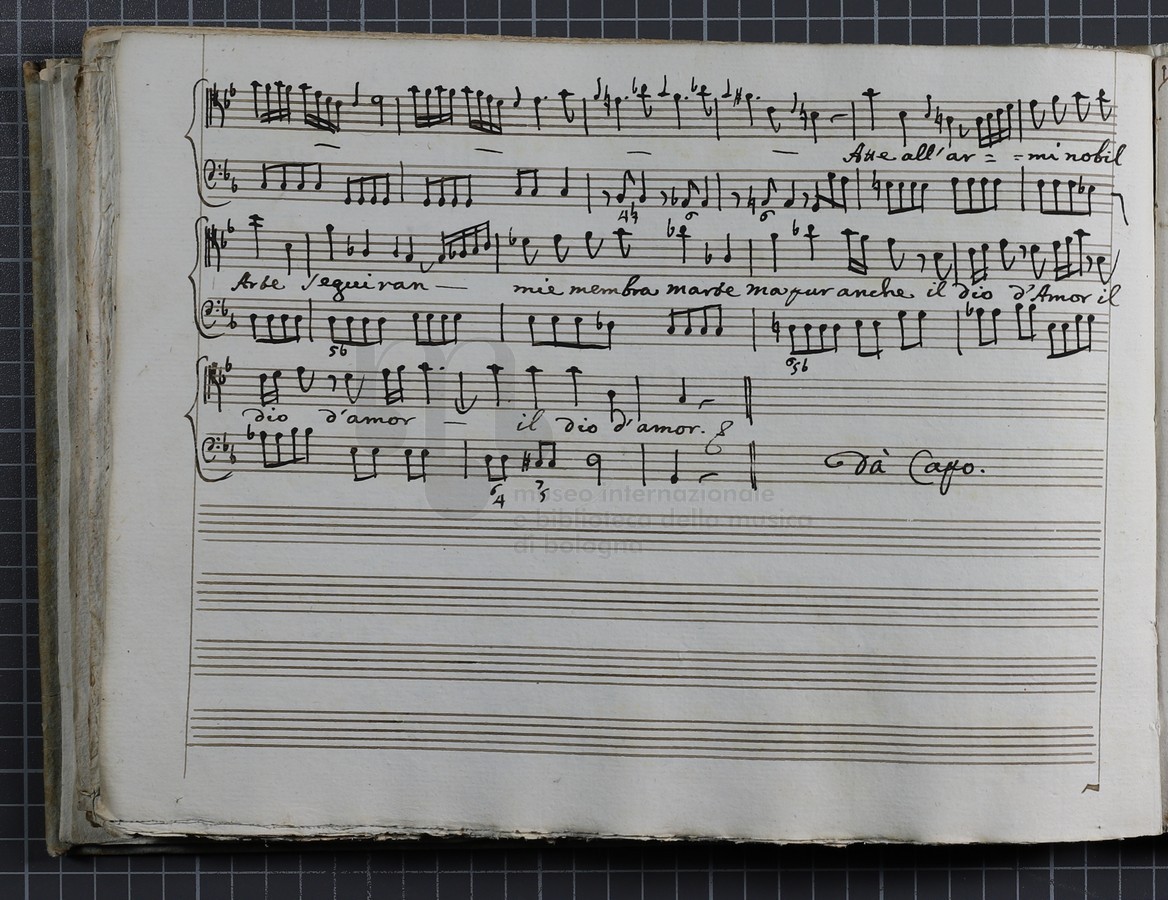 Atte all' ar = = mi nobil
4♮ 6 6
Arbe seguiran — mie membra marte ma pur anche il dio d'Amor il
5b 6 5b
dio d'amor — il dio d'amor.
Dà Capo.
6 4
museo internazionale
e biblioteca della musica
di bologna